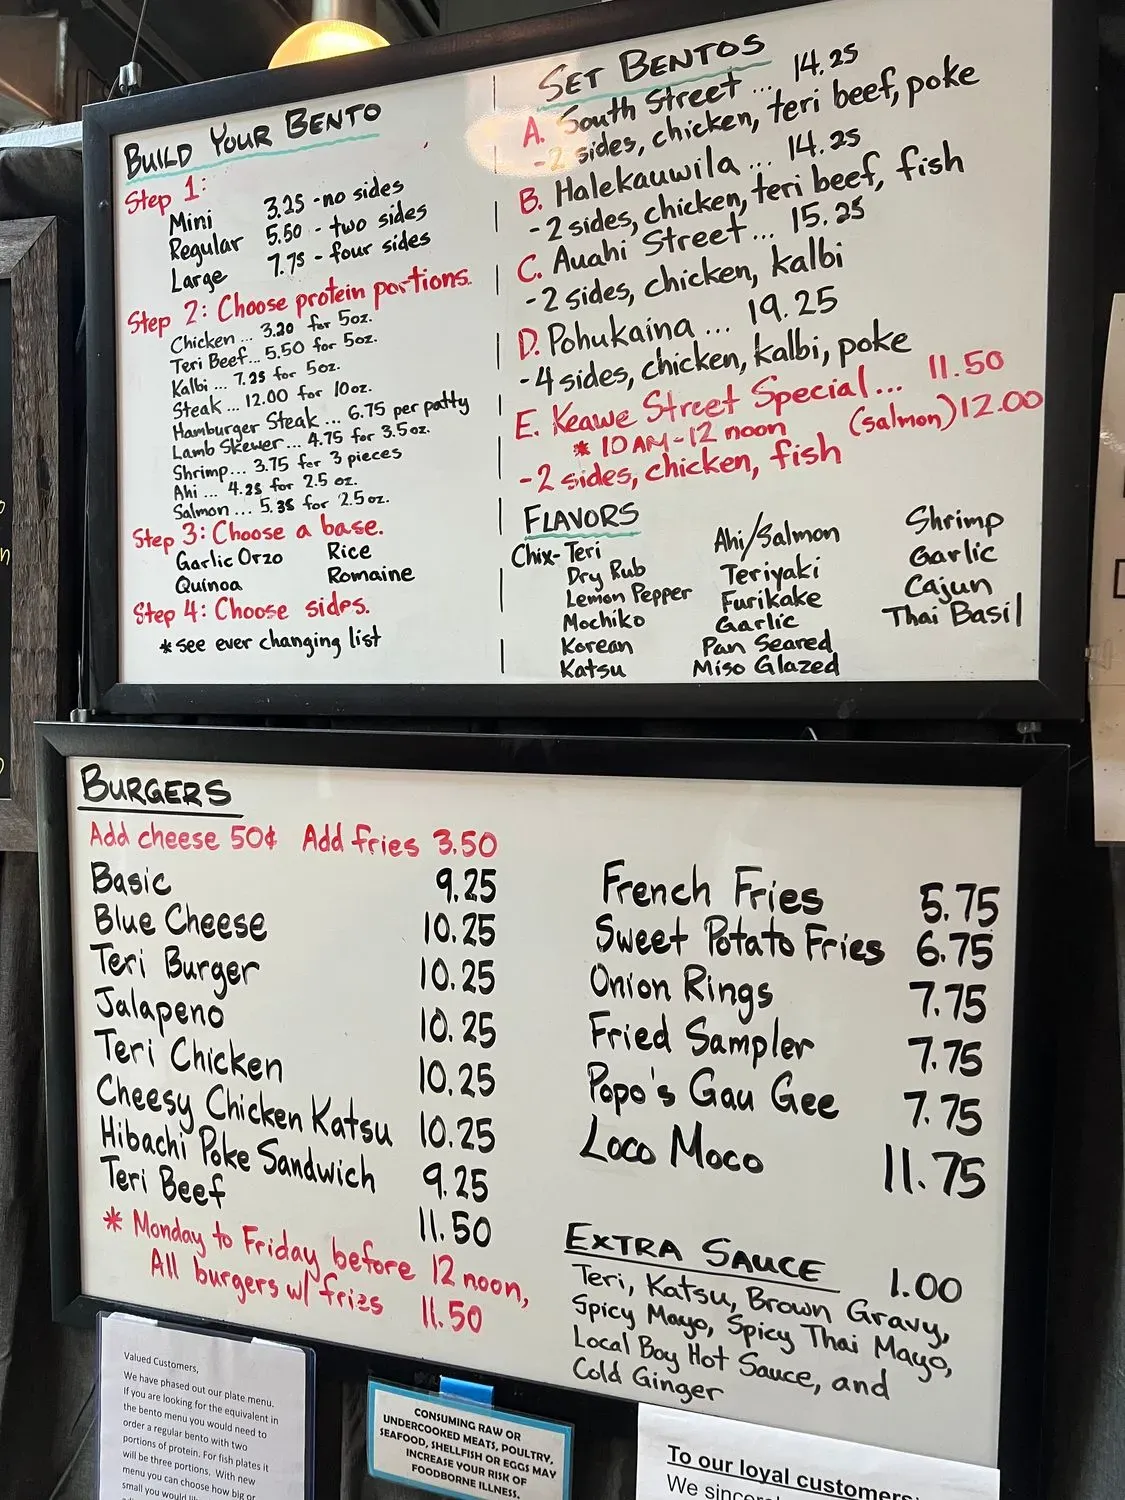 BUILD YOUR BENTO
Step 1:
Mini 3.25 - no sides
Regular 5.50 - two sides
Large 7.75 - four sides
Step 2: Choose protein portions.
Chicken ... 3.20 for 5oz.
Teri Beef... 5.50 for 5oz.
Kalbi ... 7.25 for 5oz.
Steak ... 12.00 for 10oz.
Hamburger Steak ... 6.75 per patty
Lamb Skewer... 4.75 for 3.5oz.
Shrimp... 3.75 for 3 pieces
Ahi ... 4.25 for 2.5 oz.
Salmon ... 5.35 for 2.5oz.
Step 3: Choose a base.
Garlic Orzo Rice
Quinoa Romaine
Step 4: Choose sides.
* see ever changing list
SET BENTOS
A. South Street ... 14.25
- 2 sides, chicken, teri beef, poke
B. Halekauwila ... 14.25
- 2 sides, chicken, teri beef, fish
C. Auahi Street... 15.25
- 2 sides, chicken, kalbi
D. Pohukaina ... 19.25
- 4 sides, chicken, kalbi, poke
E. Keawe Street Special... 11.50
* 10AM-12 noon (salmon) 12.00
- 2 sides, chicken, fish
FLAVORS
Chix- Teri
Dry Rub
Lemon Pepper
Mochiko
Korean
Katsu
Ahi/Salmon
Teriyaki
Furikake
Garlic
Pan Seared
Miso Glazed
Shrimp
Garlic
Cajun
Thai Basil
BURGERS
Add cheese 50¢ Add fries 3.50
Basic 9.25
Blue Cheese 10.25
Teri Burger 10.25
Jalapeno 10.25
Teri Chicken 10.25
Cheesy Chicken Katsu 10.25
Hibachi Poke Sandwich 9.25
Teri Beef 11.50
* Monday to Friday before 12 noon,
All burgers w/ fries 11.50
French Fries 5.75
Sweet Potato Fries 6.75
Onion Rings 7.75
Fried Sampler 7.75
Popo's Gau Gee 7.75
Loco Moco 11.75
EXTRA SAUCE 1.00
Teri, Katsu, Brown Gravy,
Spicy Mayo, Spicy Thai Mayo,
Local Boy Hot Sauce, and
Cold Ginger
Valued Customers,
We have phased out our plate menu.
If you are looking for the equivalent in
the bento menu you would need to
order a regular bento with two
portions of protein. For fish plates it
will be three portions. With new
menu you can choose how big or
small you would
CONSUMING RAW OR
UNDERCOOKED MEATS, POULTRY,
SEAFOOD, SHELLFISH OR EGGS MAY
INCREASE YOUR RISK OF
FOODBORNE ILLNESS.
To our loyal customers:
We